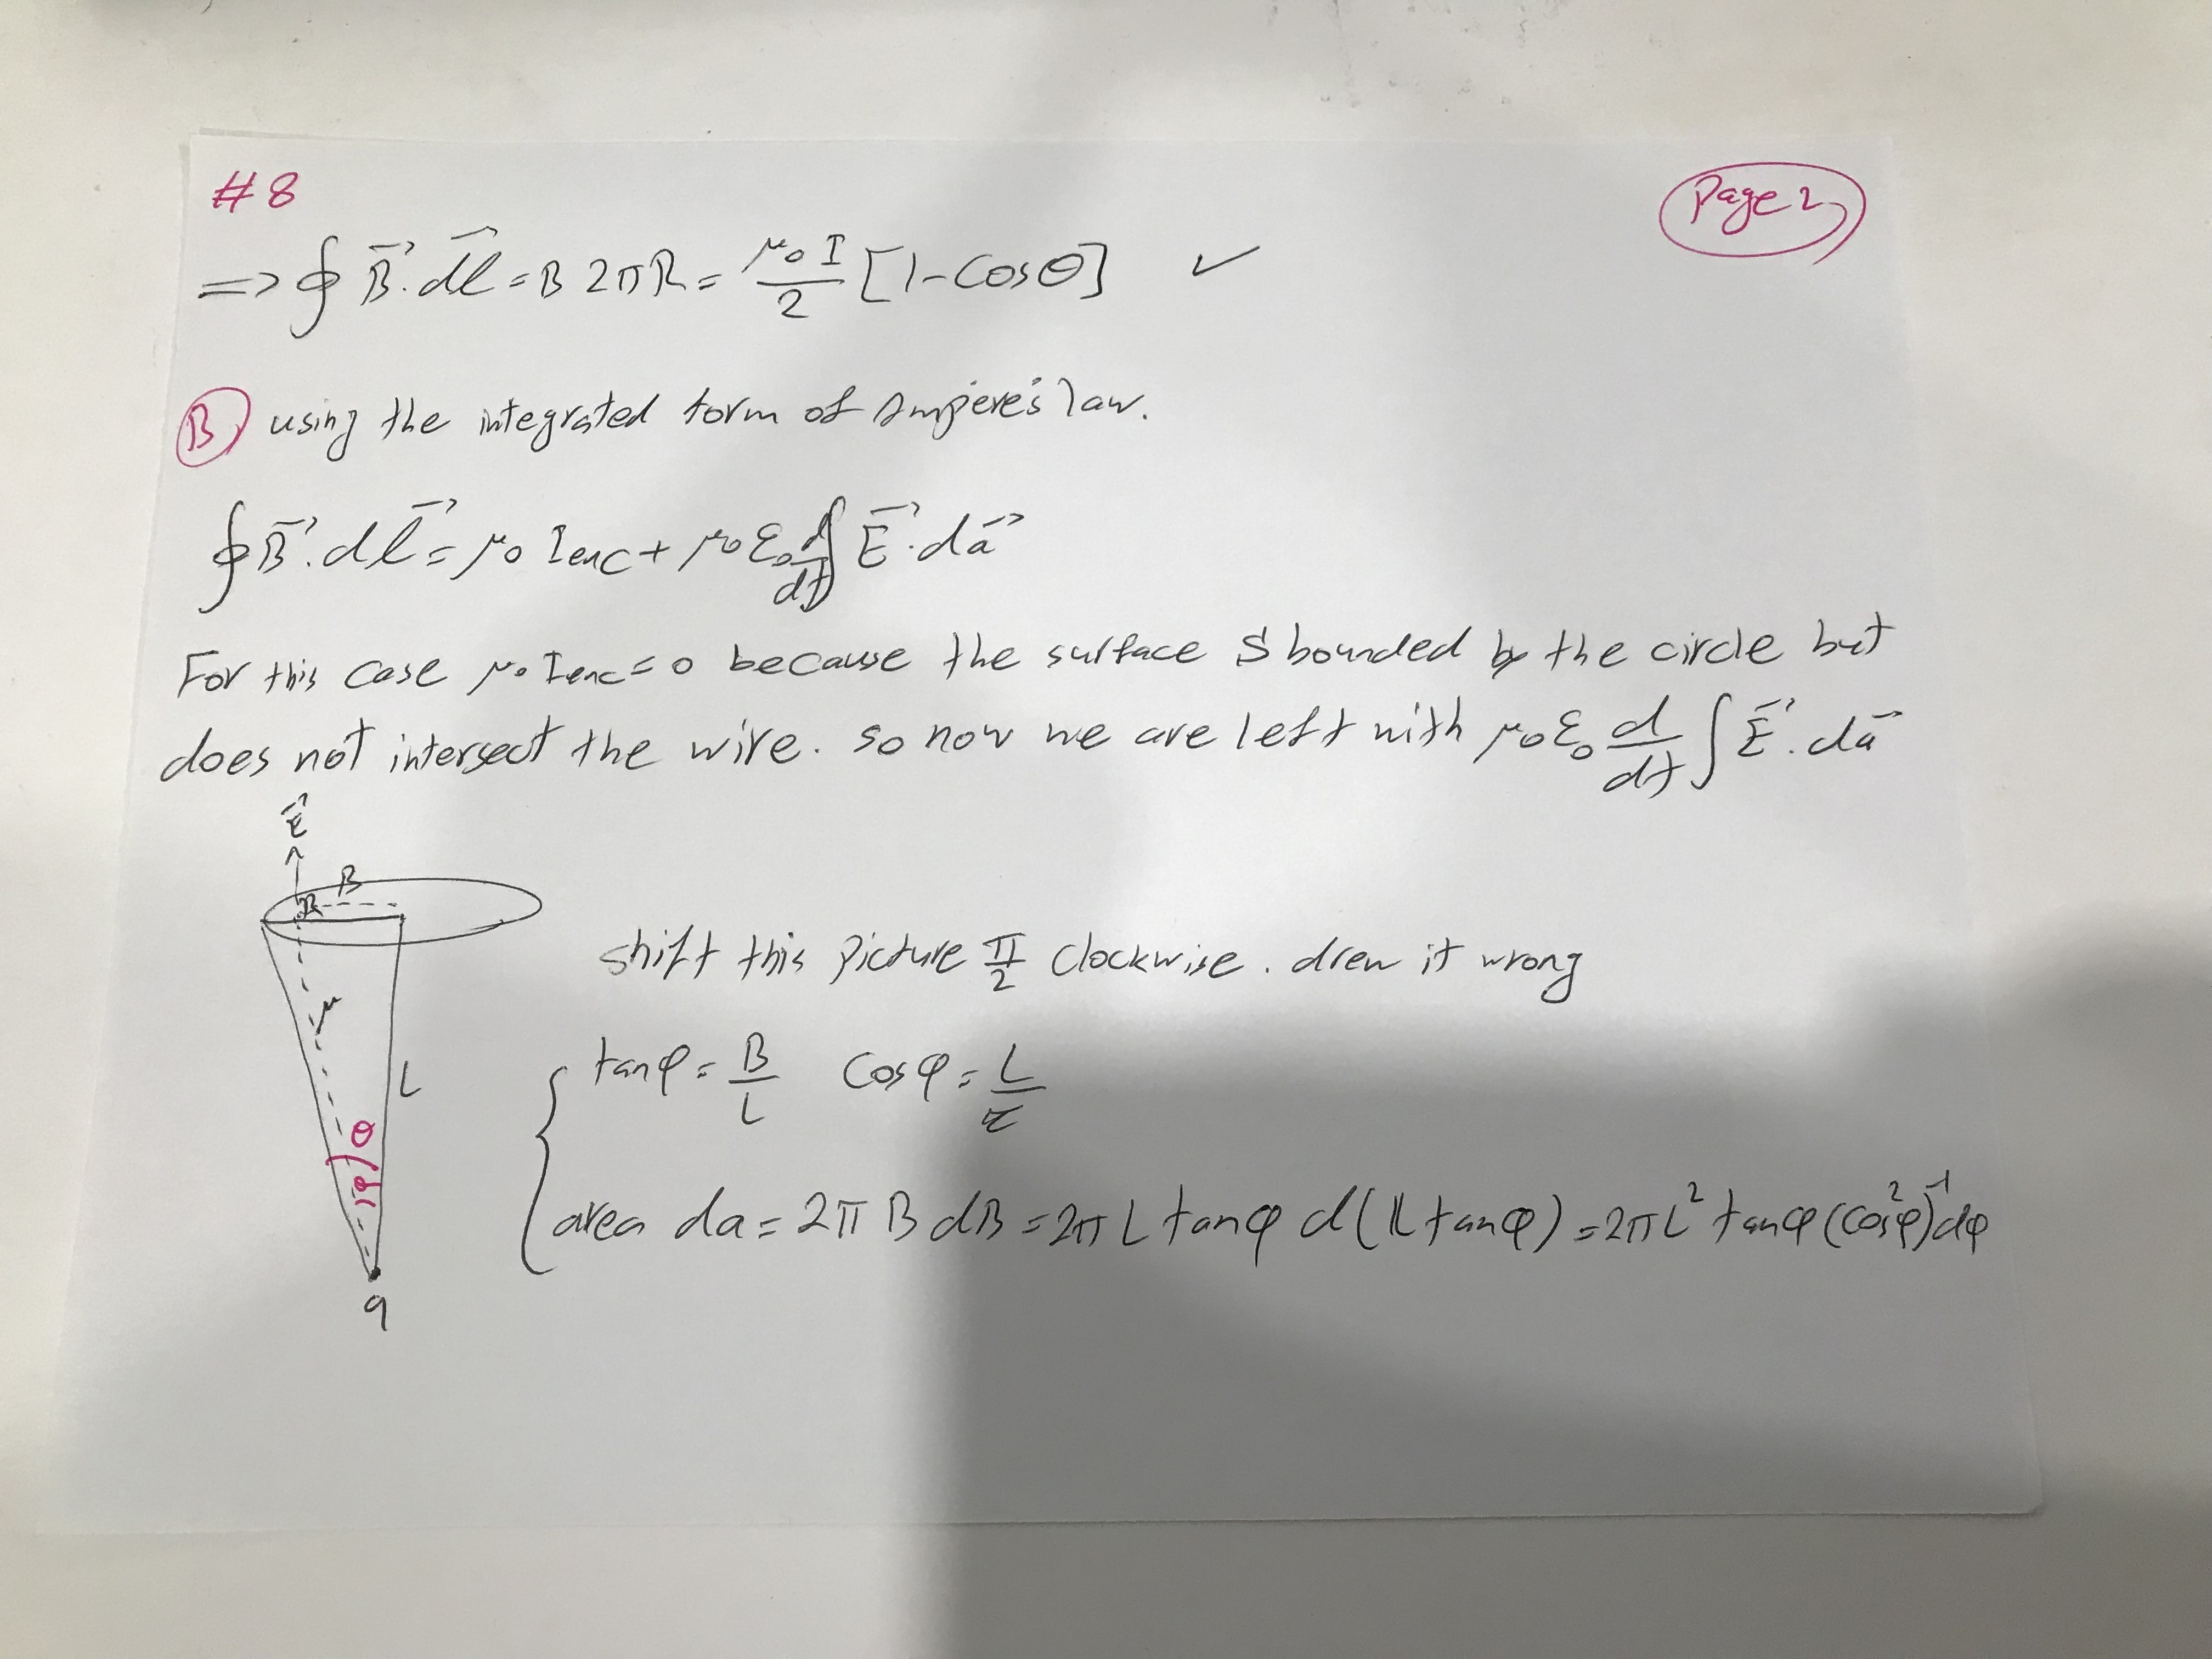 #8
Page 2
=> ∮ B⃗ · dl⃗ = B 2πR = μ₀I/2 [1 - Cosθ] ✓
B) using the integrated form of Ampere's law.
∮ B⃗ · dl⃗ = μ₀ Ienc + μ₀ε₀ d/dt ∫ E⃗ · da⃗
For this case μ₀ Ienc = 0 because the surface S bounded by the circle but
does not intersect the wire. so now we are left with μ₀ε₀ d/dt ∫ E⃗ · da⃗
E⃗
B
R
shift this picture π/2 clockwise. drew it wrong
r
tanφ = B/L Cosφ = L/r
L
θ
φ
area da = 2π B dB = 2π L tanφ d(L tanφ) = 2πL² tanφ (cos²φ)⁻¹ dφ
q